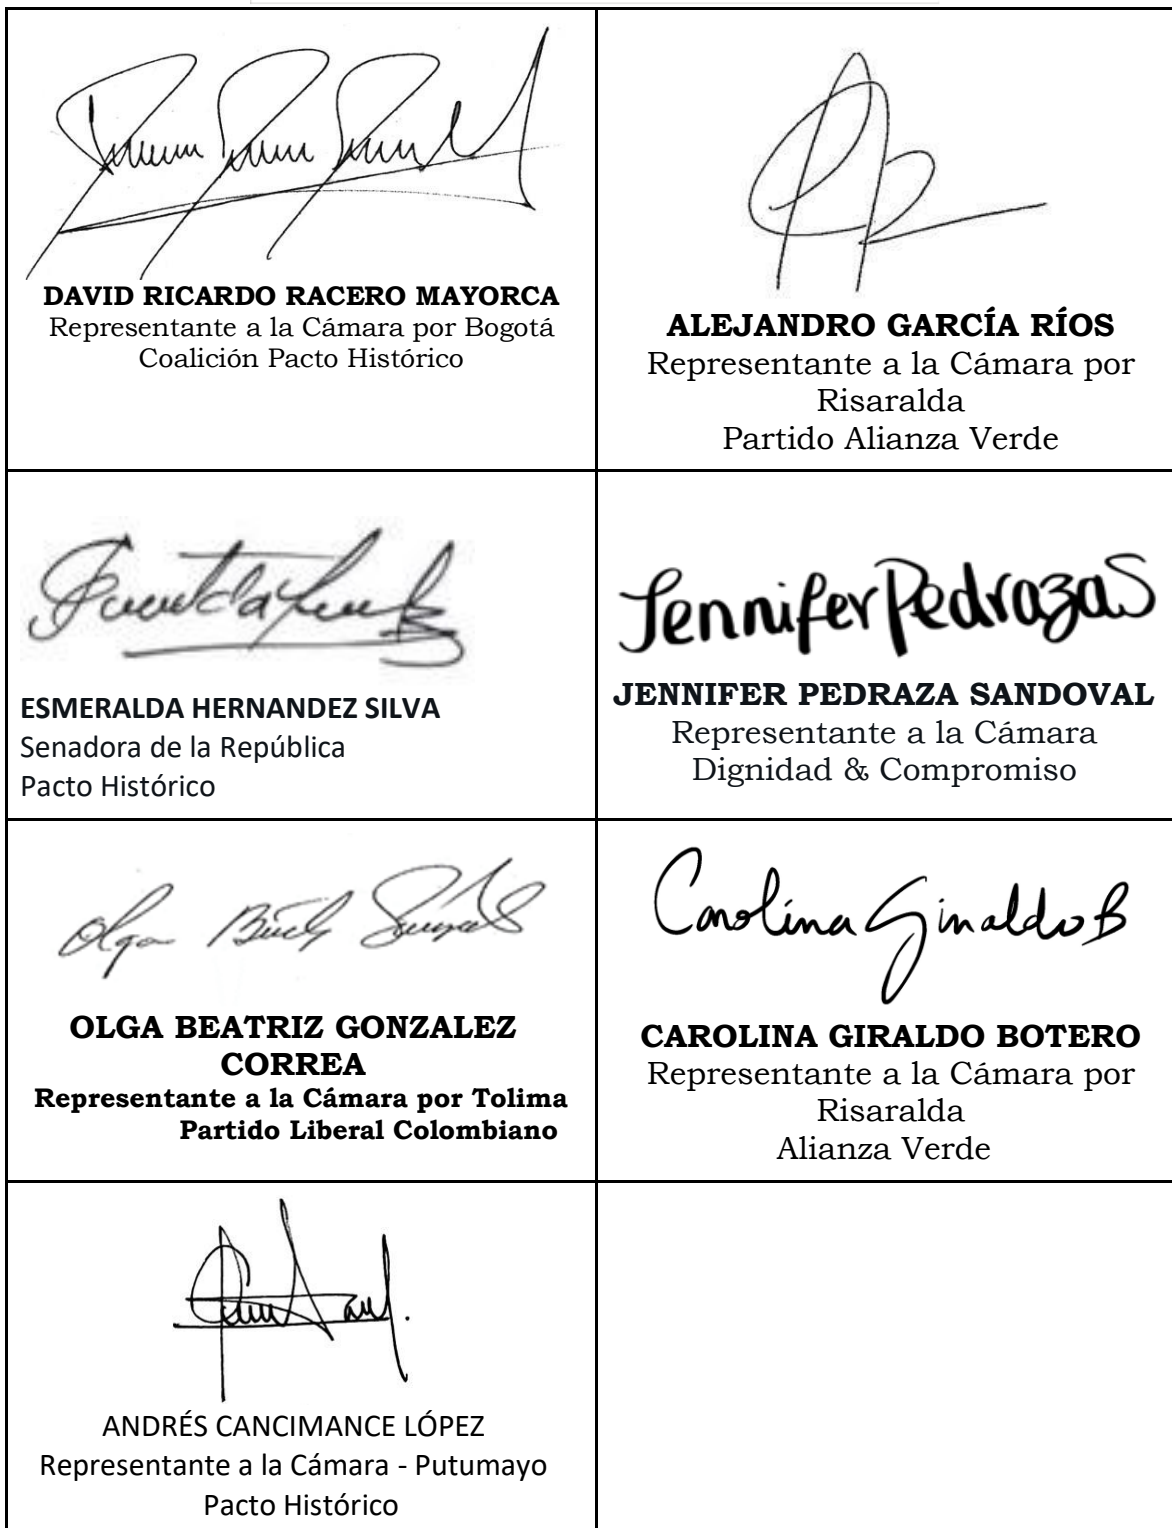 DAVID RICARDO RACERO MAYORCA
Representante a la Cámara por Bogotá
Coalición Pacto Histórico
ALEJANDRO GARCÍA RÍOS
Representante a la Cámara por
Risaralda
Partido Alianza Verde
ESMERALDA HERNANDEZ SILVA
Senadora de la República
Pacto Histórico
Jennifer Pedraza S
JENNIFER PEDRAZA SANDOVAL
Representante a la Cámara
Dignidad & Compromiso
Olga
OLGA BEATRIZ GONZALEZ
CORREA
Representante a la Cámara por Tolima
Partido Liberal Colombiano
Carolina Giraldo B
CAROLINA GIRALDO BOTERO
Representante a la Cámara por
Risaralda
Alianza Verde
ANDRÉS CANCIMANCE LÓPEZ
Representante a la Cámara - Putumayo
Pacto Histórico